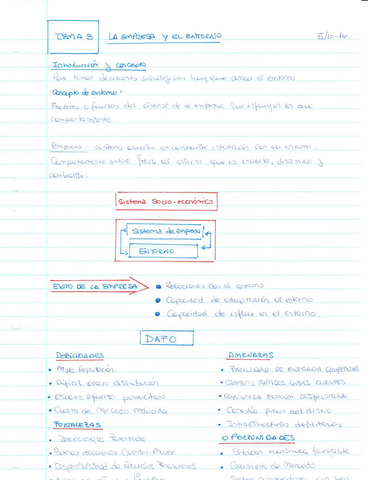 TEMA 3 LA EMPRESA Y EL ENTORNO 5/10-16
Introducción y concepto
Para tomar decisiones estratégicas hay que conocer el entorno
Concepto de entorno:
Factores o fuerzas del exterior de la empresa que influyen en su
comportamiento.
Empresa: sistema abierto en constante interacción con su entorno.
Comportamiento activo frente al entorno que es incierto, y
cambiante.
Sistema Socio-económico
Sistema de empresa
ENTORNO
ÉXITO DE LA EMPRESA
• Relaciones con el entorno
• Capacidad de adaptación al entorno
• Capacidad de influir en el entorno
DAFO
DEBILIDADES
• Mala Reputación
• Difícil acceso distribución
• Escaso esfuerzo publicitario
• Cuota de Mercado reducida
FORTALEZAS
• Tecnología Patentada
• Buenas relaciones
• Disponibilidad de Recursos Financieros
AMENAZAS
• FACILIDAD DE ENTRADA COMPETIDORES
• CAMBIOS GUSTOS CLIENTES
• DESFAVORABLE
•
• Infraestructuras deficitarias
OPORTUNIDADES
• Situación económica favorable
• Crecimiento de Mercado